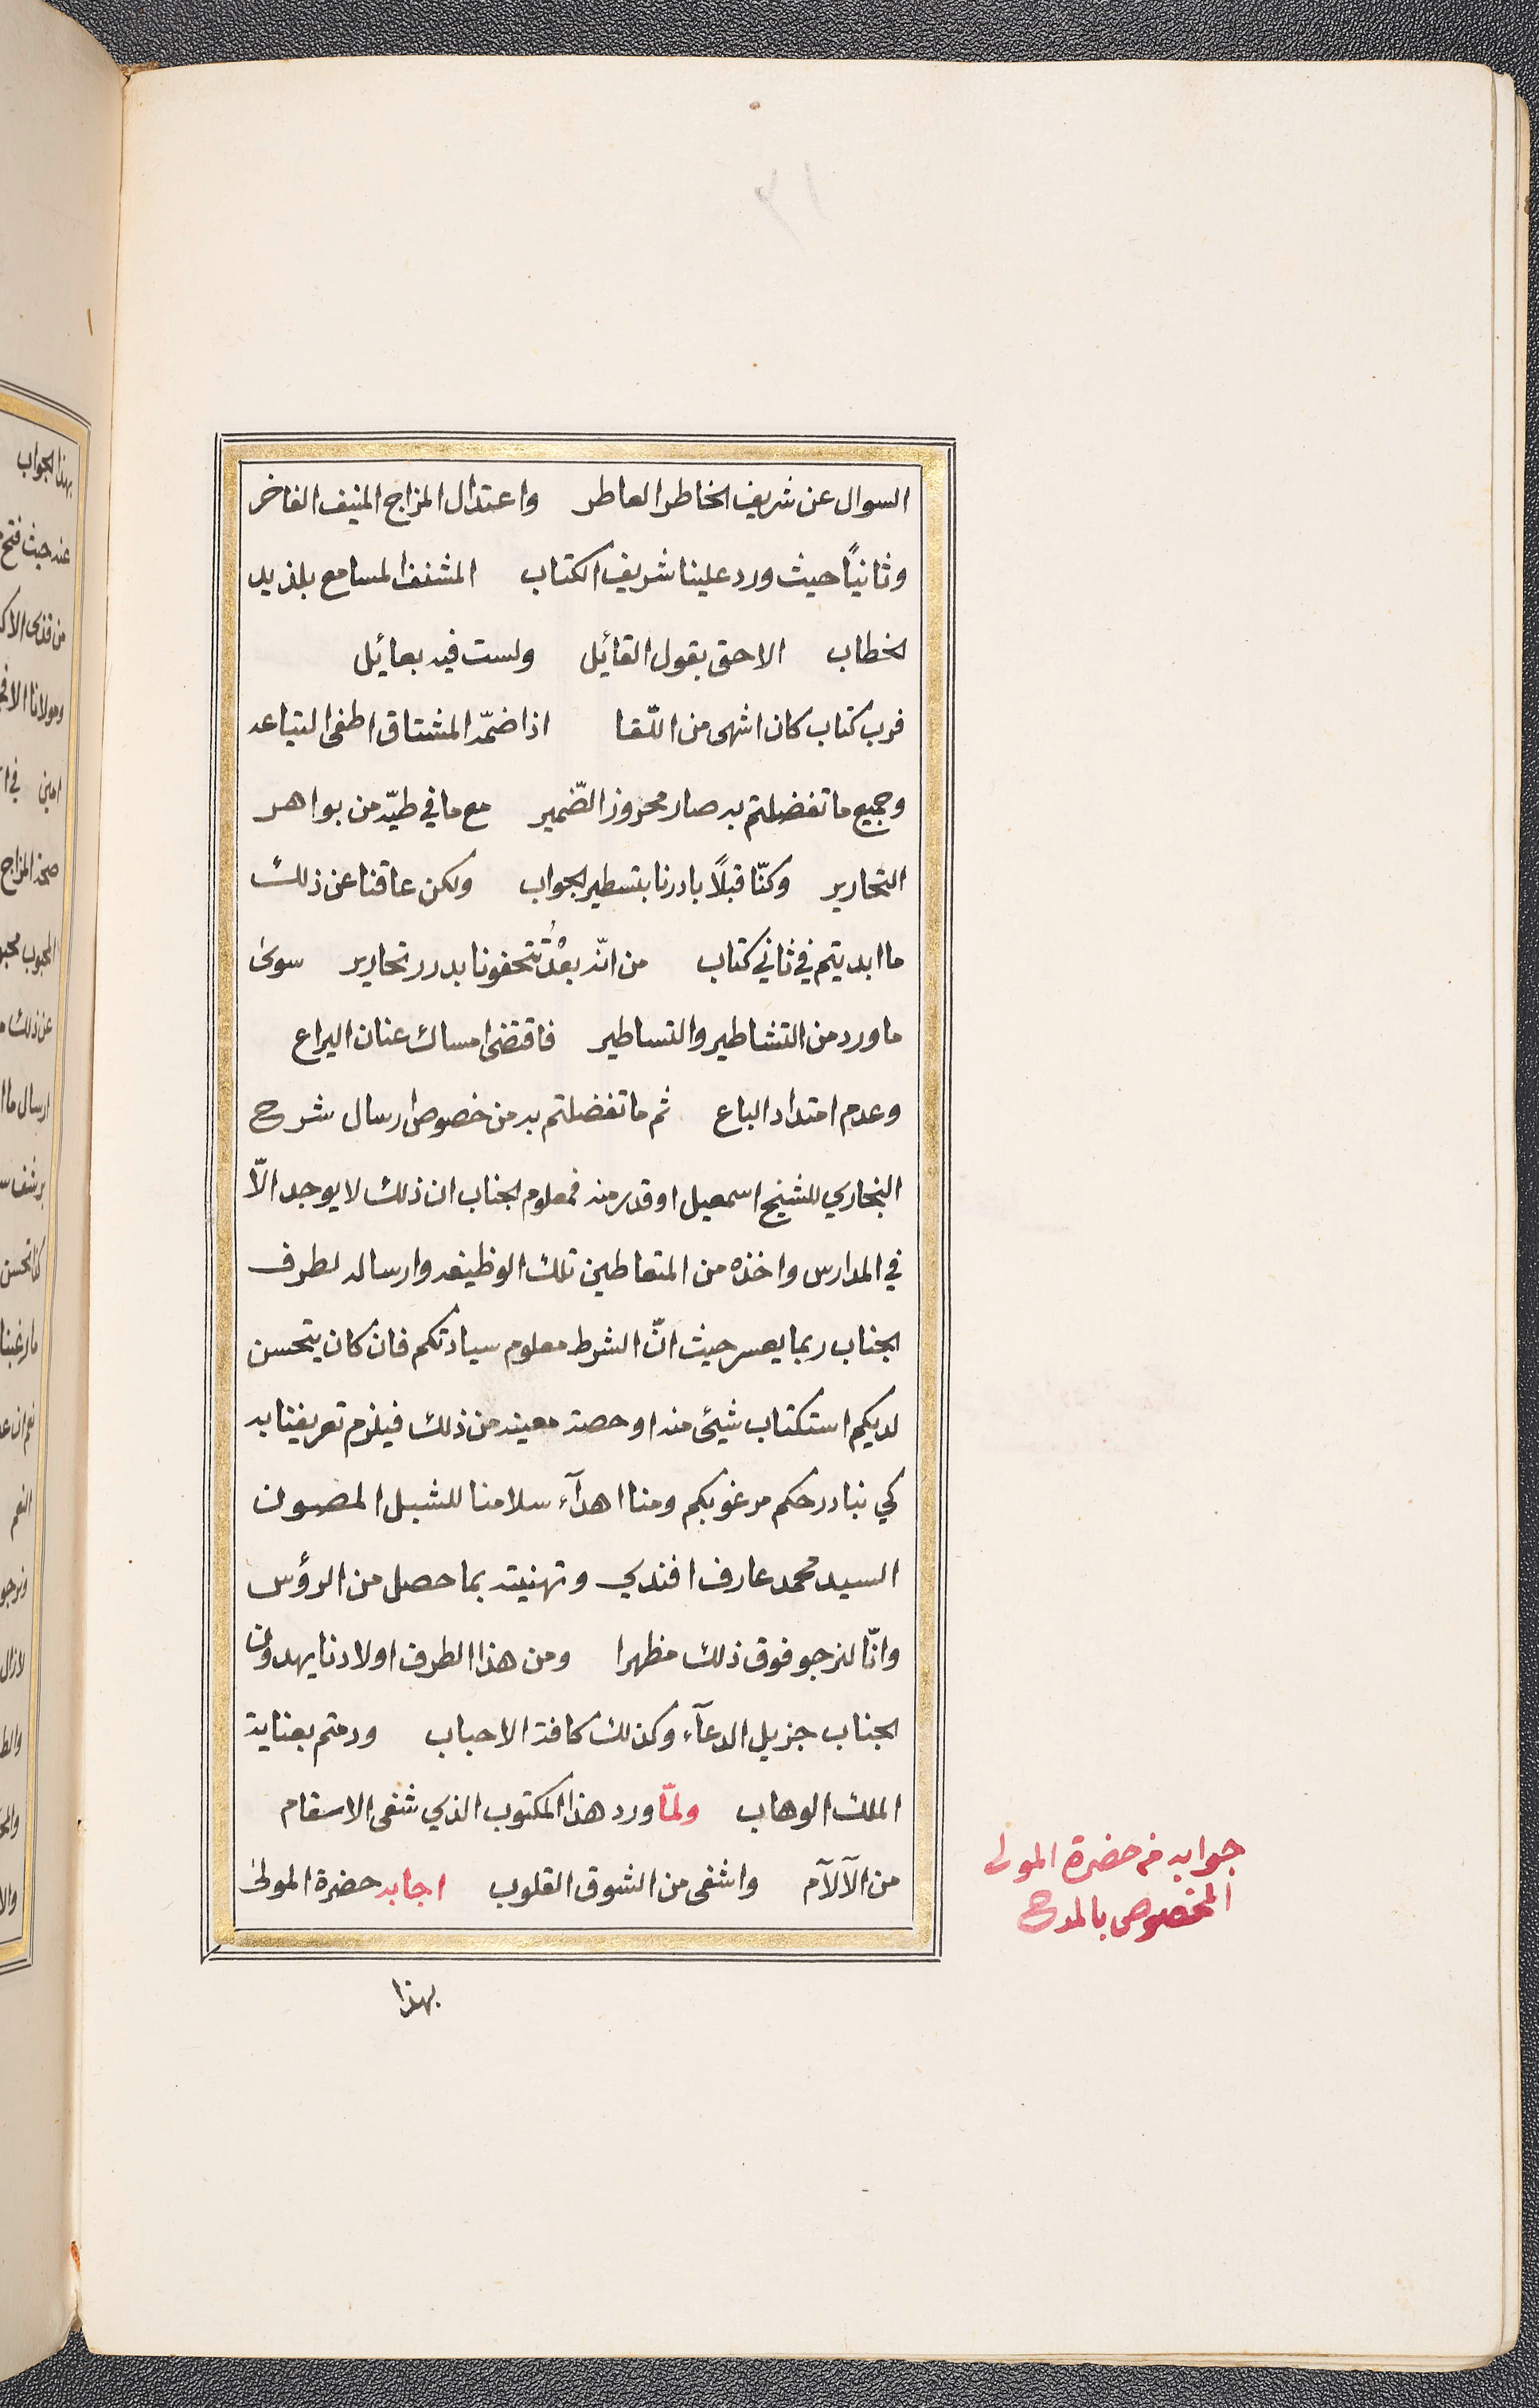 ١٢
السوال عن شريف الخاطر العاطر واعتدال المزاج المنيف الفاخر
وثانيًا حيث ورد علينا شريف الكتاب المشنف المسامع بلذيد
الخطاب الاحق بقول القائل ولست فيه بعائل
فرب كتاب كان اشهى من اللّقا اذا ضمّه المشتاق اطفى التباعد
وجميع ما تفضلتم به صار محروز الضّمير مع ما في طيّه من بواهر
التحارير وكنّا قبلًا بادرنا بتسطير الجواب ولكن عاقنا عن ذلك
ما ابديتم في ثاني كتاب من انّه بعْدُ تتحفونا بدرر تحارير سوى
ما ورد من التشاطير والتساطير فاقتضى امساك عنان اليراع
وعدم امتداد الباع ثم ما تفضلتم به من خصوص ارسال شرح
البخاري للشيخ اسمعيل او قدر منه فمعلوم الجناب ان ذلك لا يوجد الّا
في المدارس واخذه من المتعاطين تلك الوظيفه وارساله لطرف
الجناب ربما يعسر حيث انّ الشرط معلوم سيادتكم فان كان يتحسن
لديكم استكتاب شيئ منه او حصة معينه من ذلك فيلزم تعريفنا به
كي نبادر حكم مرغوبكم ومنا اهدآء سلامنا للشبل المصون
السيد محمد عارف افندي وتهنيته بما حصل من الرؤس
وانّا لنرجو فوق ذلك مظهرا ومن هذا الطرف اولادنا يهدون
الجناب جزيل الدعآء وكذلك كافة الاحباب ودمتم بعناية
الملك الوهاب ولمّا ورد هذا المكتوب الذي شفى الاسقام
من الآلآم واشفى من الشوق القلوب اجابه حضرة المولى
جوابه من حضرة المولى
المخصوص بالمدح
بهذا